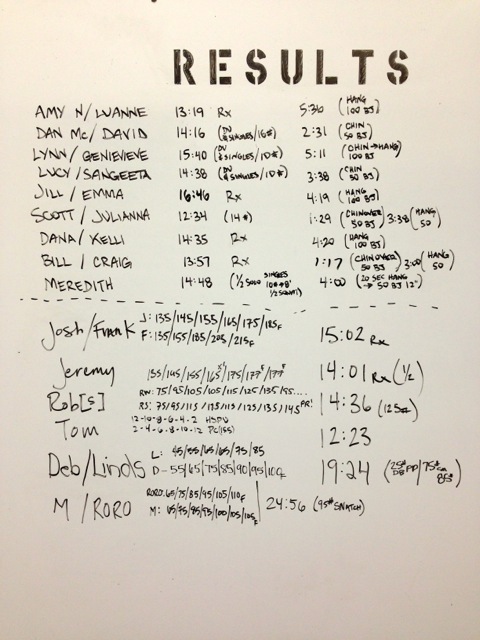 RESULTS
AMY N/LUANNE 13:19 Rx 5:36 (HANG 100 BJ)
DAN MC/DAVID 14:16 (DU & SINGLES/16#) 2:31 (CHIN 50 BJ)
LYNN/GENIEVIEVE 15:40 (DU & SINGLES/10#) 5:11 (CHIN→HANG 100 BJ)
LUCY/SANGEETA 14:38 (DU & SINGLES/10#) 3:38 (CHIN 50 BJ)
JILL/EMMA 16:46 Rx 4:19 (HANG 100 BJ)
SCOTT/JULIANNA 12:34 (14#) 1:29 (CHINOVER 50 BJ) 3:38 (HANG 50)
DANA/KELLI 14:35 Rx 4:20 (HANG 100 BJ)
BILL/CRAIG 13:57 Rx 1:17 (CHINOVER 50 BJ) 3:00 (HANG 50)
MEREDITH 14:48 (1/2 SOLO SINGLES 10# 8' 1/2 SQUAT) 4:00 (20 SEC HANG → 50 BJ 12")
Josh/Frank J: 135/145/155/165/175/185F 15:02 Rx
F: 135/155/185/205/215F
Jeremy 135/145/155/165/175/177/177 14:01 Rx (1/2)
Rob[s] RW: 75/95/105/105/115/125/135/155.... 14:36 (125#)
RS: 75/95/115/135/115/125/135/145 PR!
Tom 12-10-8-6-4-2 HSPU 12:23
2-4-6-8-10-12 PC(155)
Deb/Linds L: 45/55/65/65/75/85 19:24 (25# DB PP/75#
D- 55/65/75/85/90/95/100F
M/RORO RORO: 65/75/85/95/105/110F 24:56 (95# SNATCH)
M: 65/75/85/95/100/105/105F